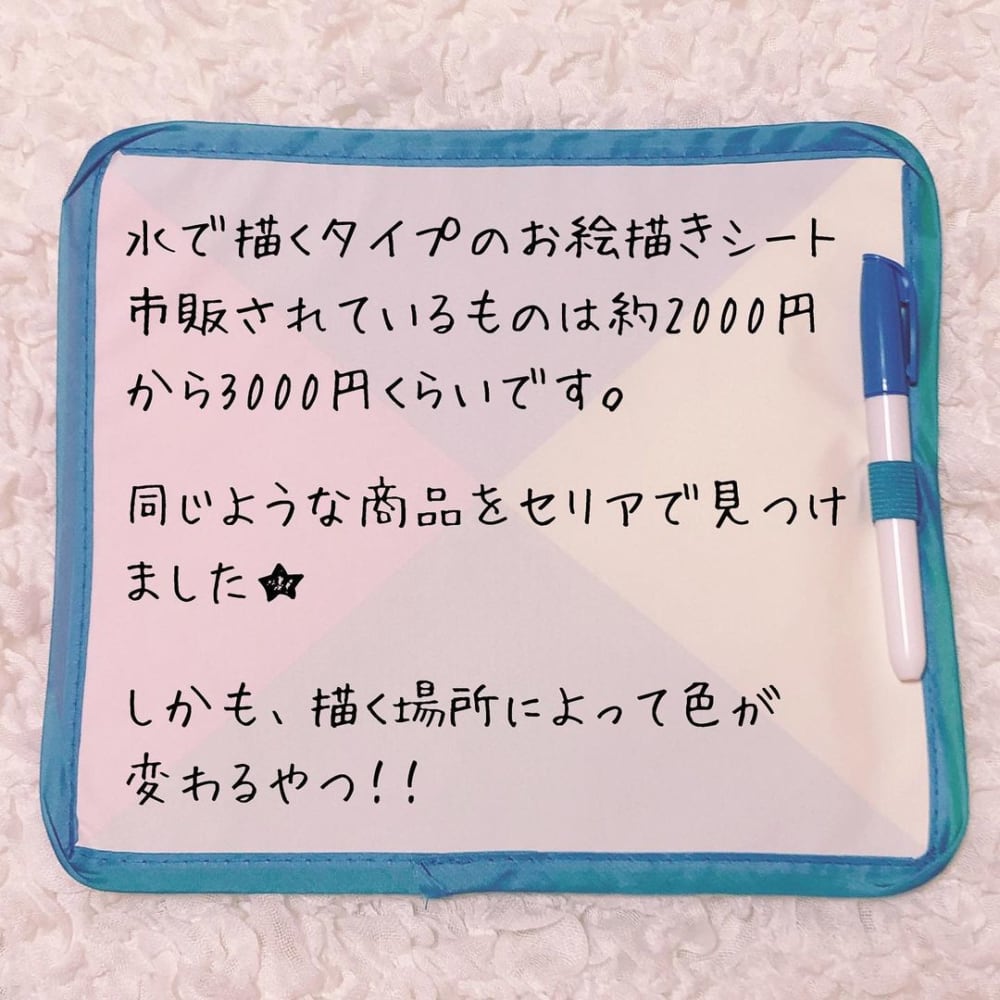 水で描くタイプのお絵描きシート
市販されているものは約2000円
から3000円くらいです。
同じような商品をセリアで見つけ
ました★
しかも、描く場所によって色が
変わるやつ!!